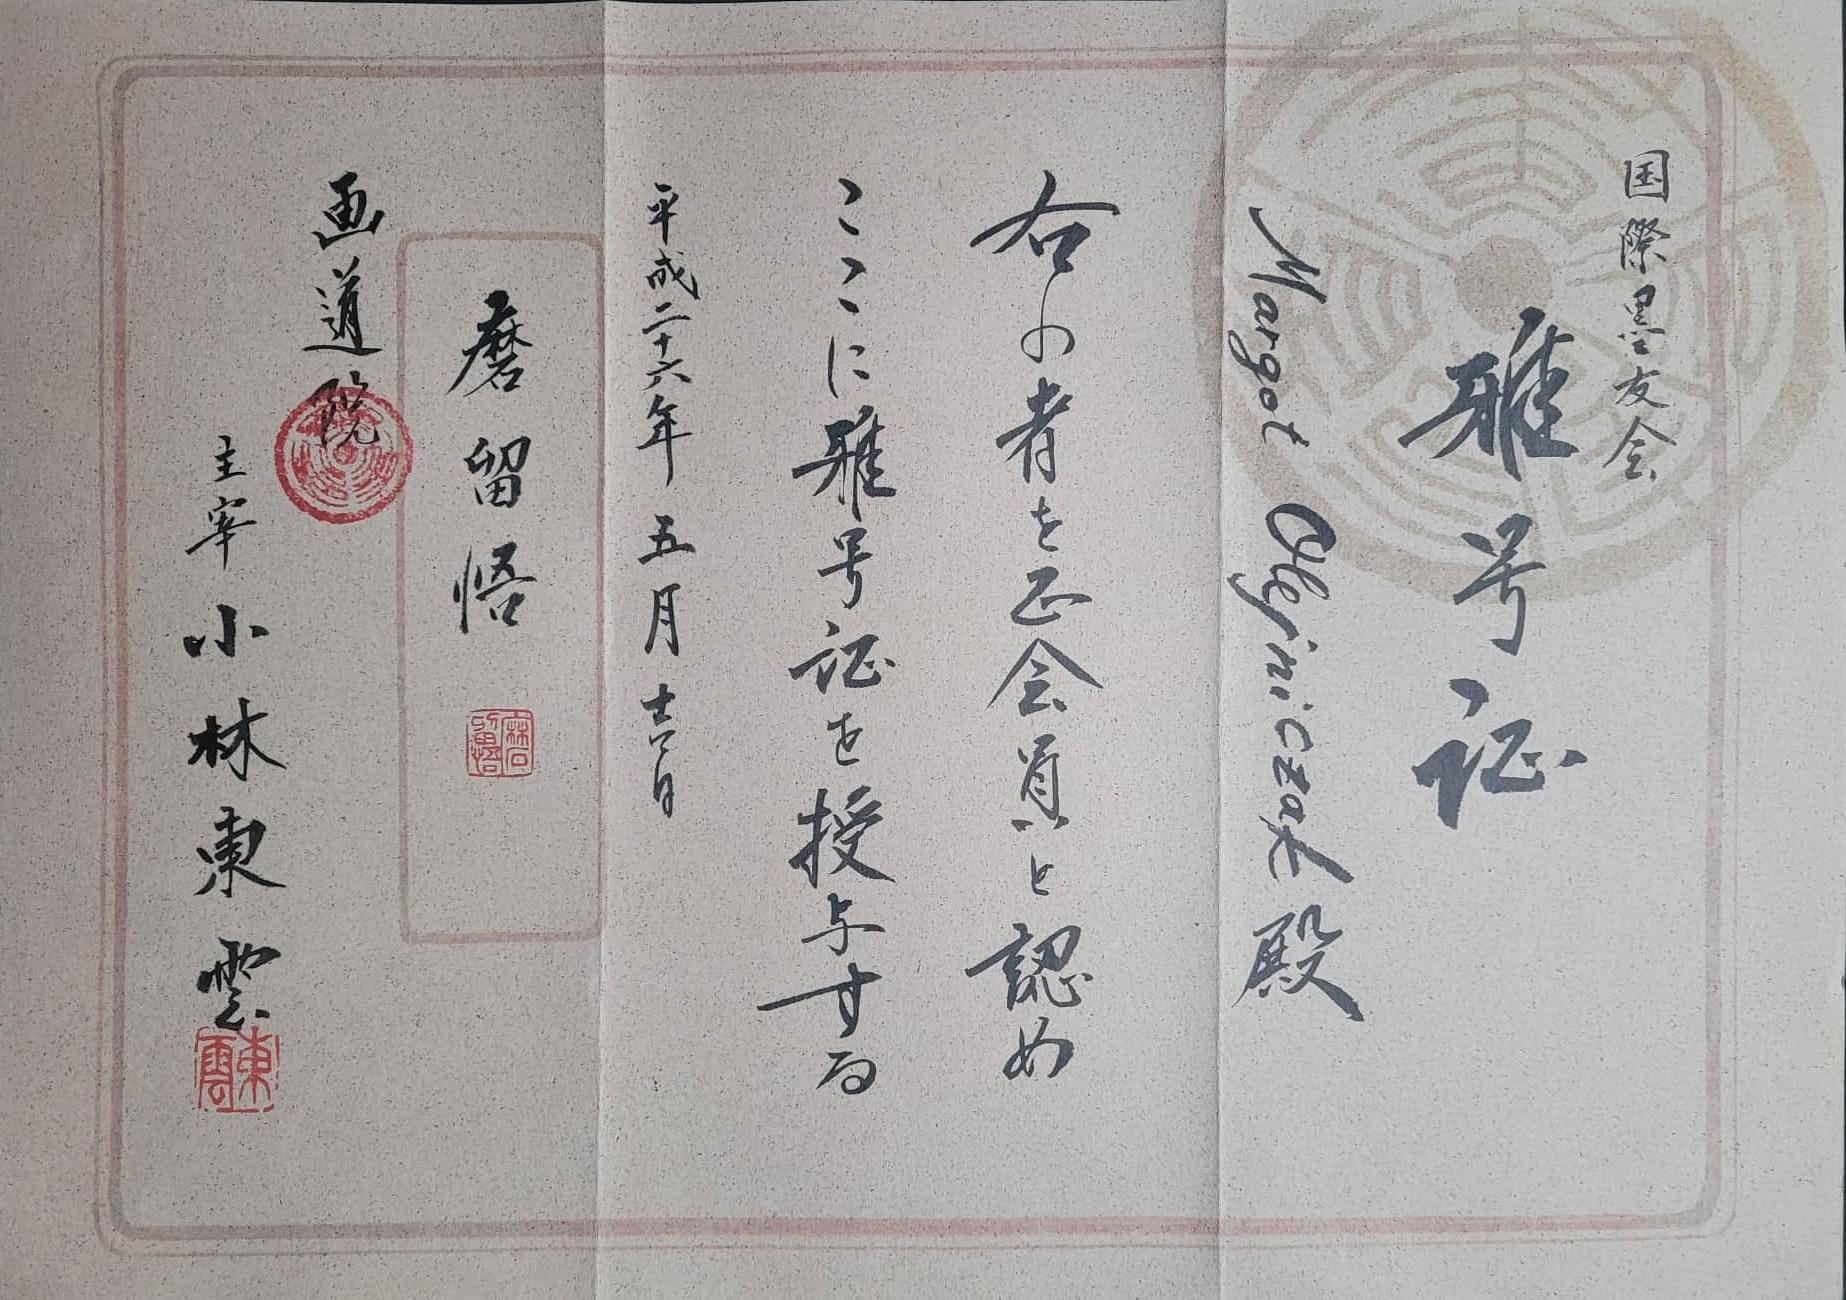 国際墨友会
雅号証
Margot Olejniczak 殿
右の者を正会員と認め
ここに雅号証を授与する
平成二十六年 五月 十六日
磨留悟
磨留悟
画道院
主宰 小林東雲
東雲